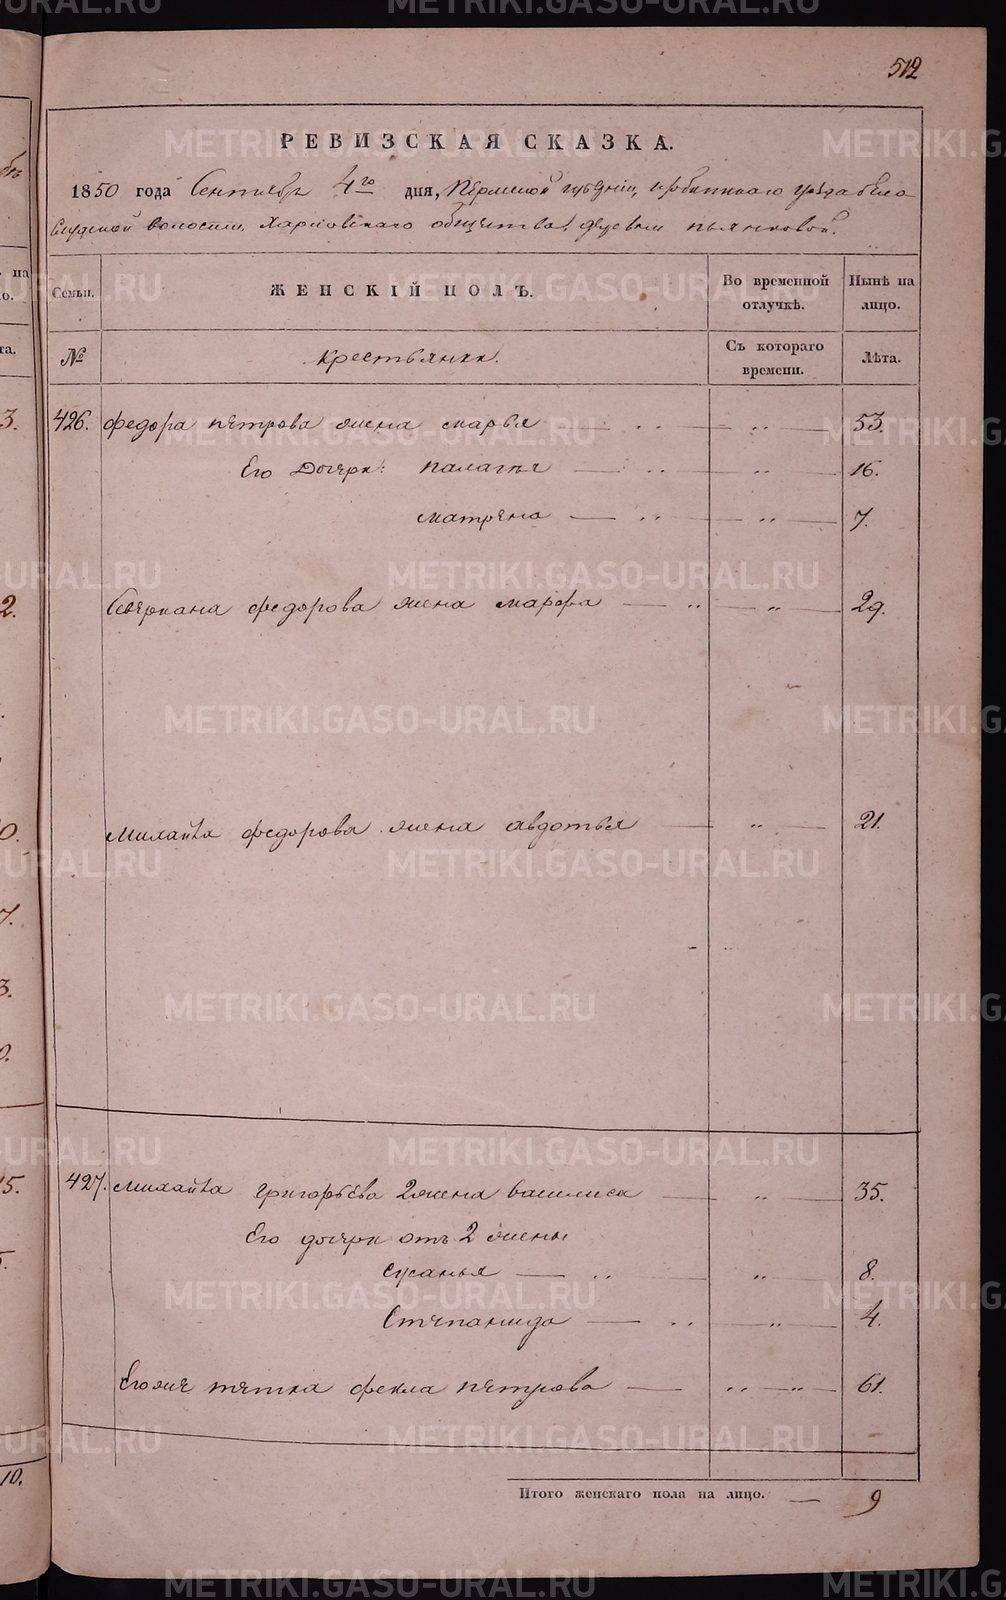 512
РЕВИЗСКАЯ СКАЗКА.
1850 года Сентября 4го дня, Пермской губернии, Ирбитскаго уезда Бело-
слудской волости, Харловскаго общества, деревни Пьянковой.
Семьи. ЖЕНСКІЙ ПОЛЪ. Во временной отлучкѣ. Нынѣ на лицо.
№ Крестьянки. Съ котораго времени. Лѣта.
426. Федора Петрова жена Марья — 53.
Его Дочери: Палагея — 16.
Матрена — 7.
Северьяна Федорова жена Марфа — 29.
Михайла Федорова жена Авдотья — 21.
427. Михайла Григорьева 2 жена Василиса — 35.
Его дочери отъ 2 жены
— 8.
Степанида — 4.
Егоже тетка Фекла Петрова — 61.
Итого женскаго пола на лицо. — 9
METRIKI.GASO-URAL.RU